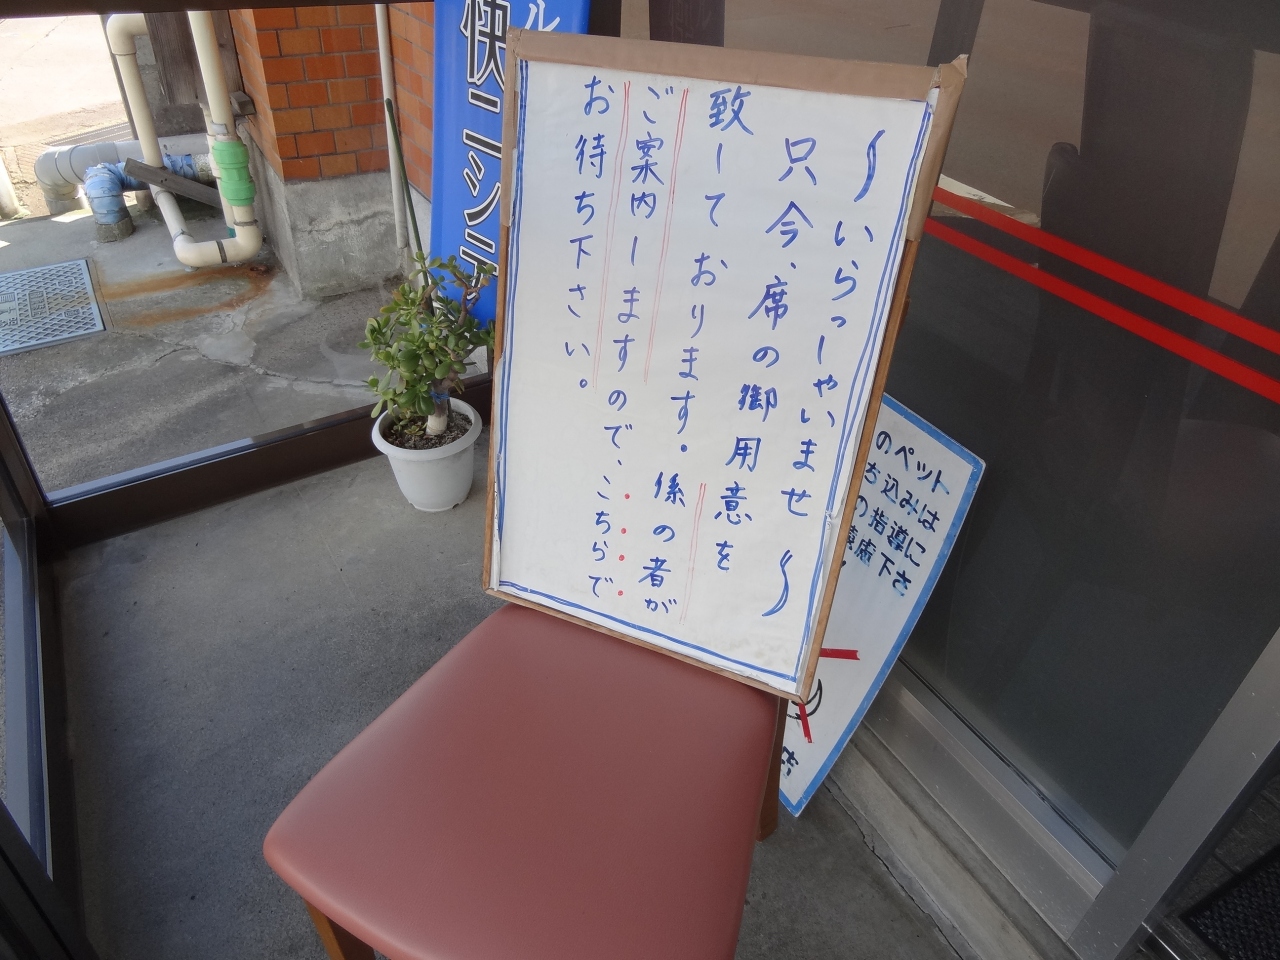 ～いらっしゃいませ～
只今、席の御用意を
致しております。係の者が
ご案内しますので、こちらで
お待ち下さい。
のペット
ち込みは
の指導に
慮下さ
店
ル
快ニシテ